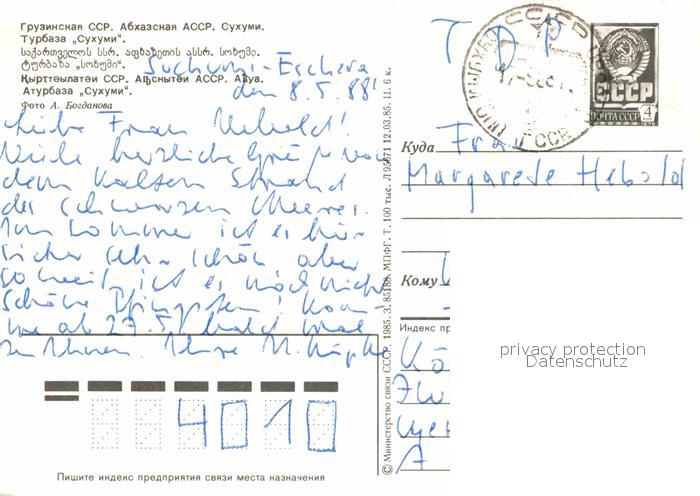 Грузинская ССР. Абхазская АССР. Сухуми.
Турбаза „Сухуми“.
საქართველოს სსრ. აფხაზეთის ასსრ. სოხუმი.
ტურბაზა „სოხუმი“.
Қырҭтәылатәи ССР. Аҧснытәи АССР. Аҟуа.
Атурбаза „Сухуми“.
Фото А. Богданова
Suchumi-Eschera
den 8.5.88
Liebe Frau Hebold!
Viele herzliche Grüße von
dem kalten Strand
des Schwarzen Meeres.
Im Sommer ist es hier
sicher sehr schön aber
soweit ist es noch nicht
Schöne Pfingsten!
ab 27.5. bald mal
zu Ihnen. Ihre
4010
Пишите индекс предприятия связи места назначения
© Министерство связи СССР. 1985. З. 85188. МПФГ. Т. 100 тыс. Л 95671 12.03.85. Ц. 6 к.
СССР
ПОЧТА СССР
4
Куда
Frau
Margarete Hebold
Кому
Индекс пр
privacy protection
Datenschutz